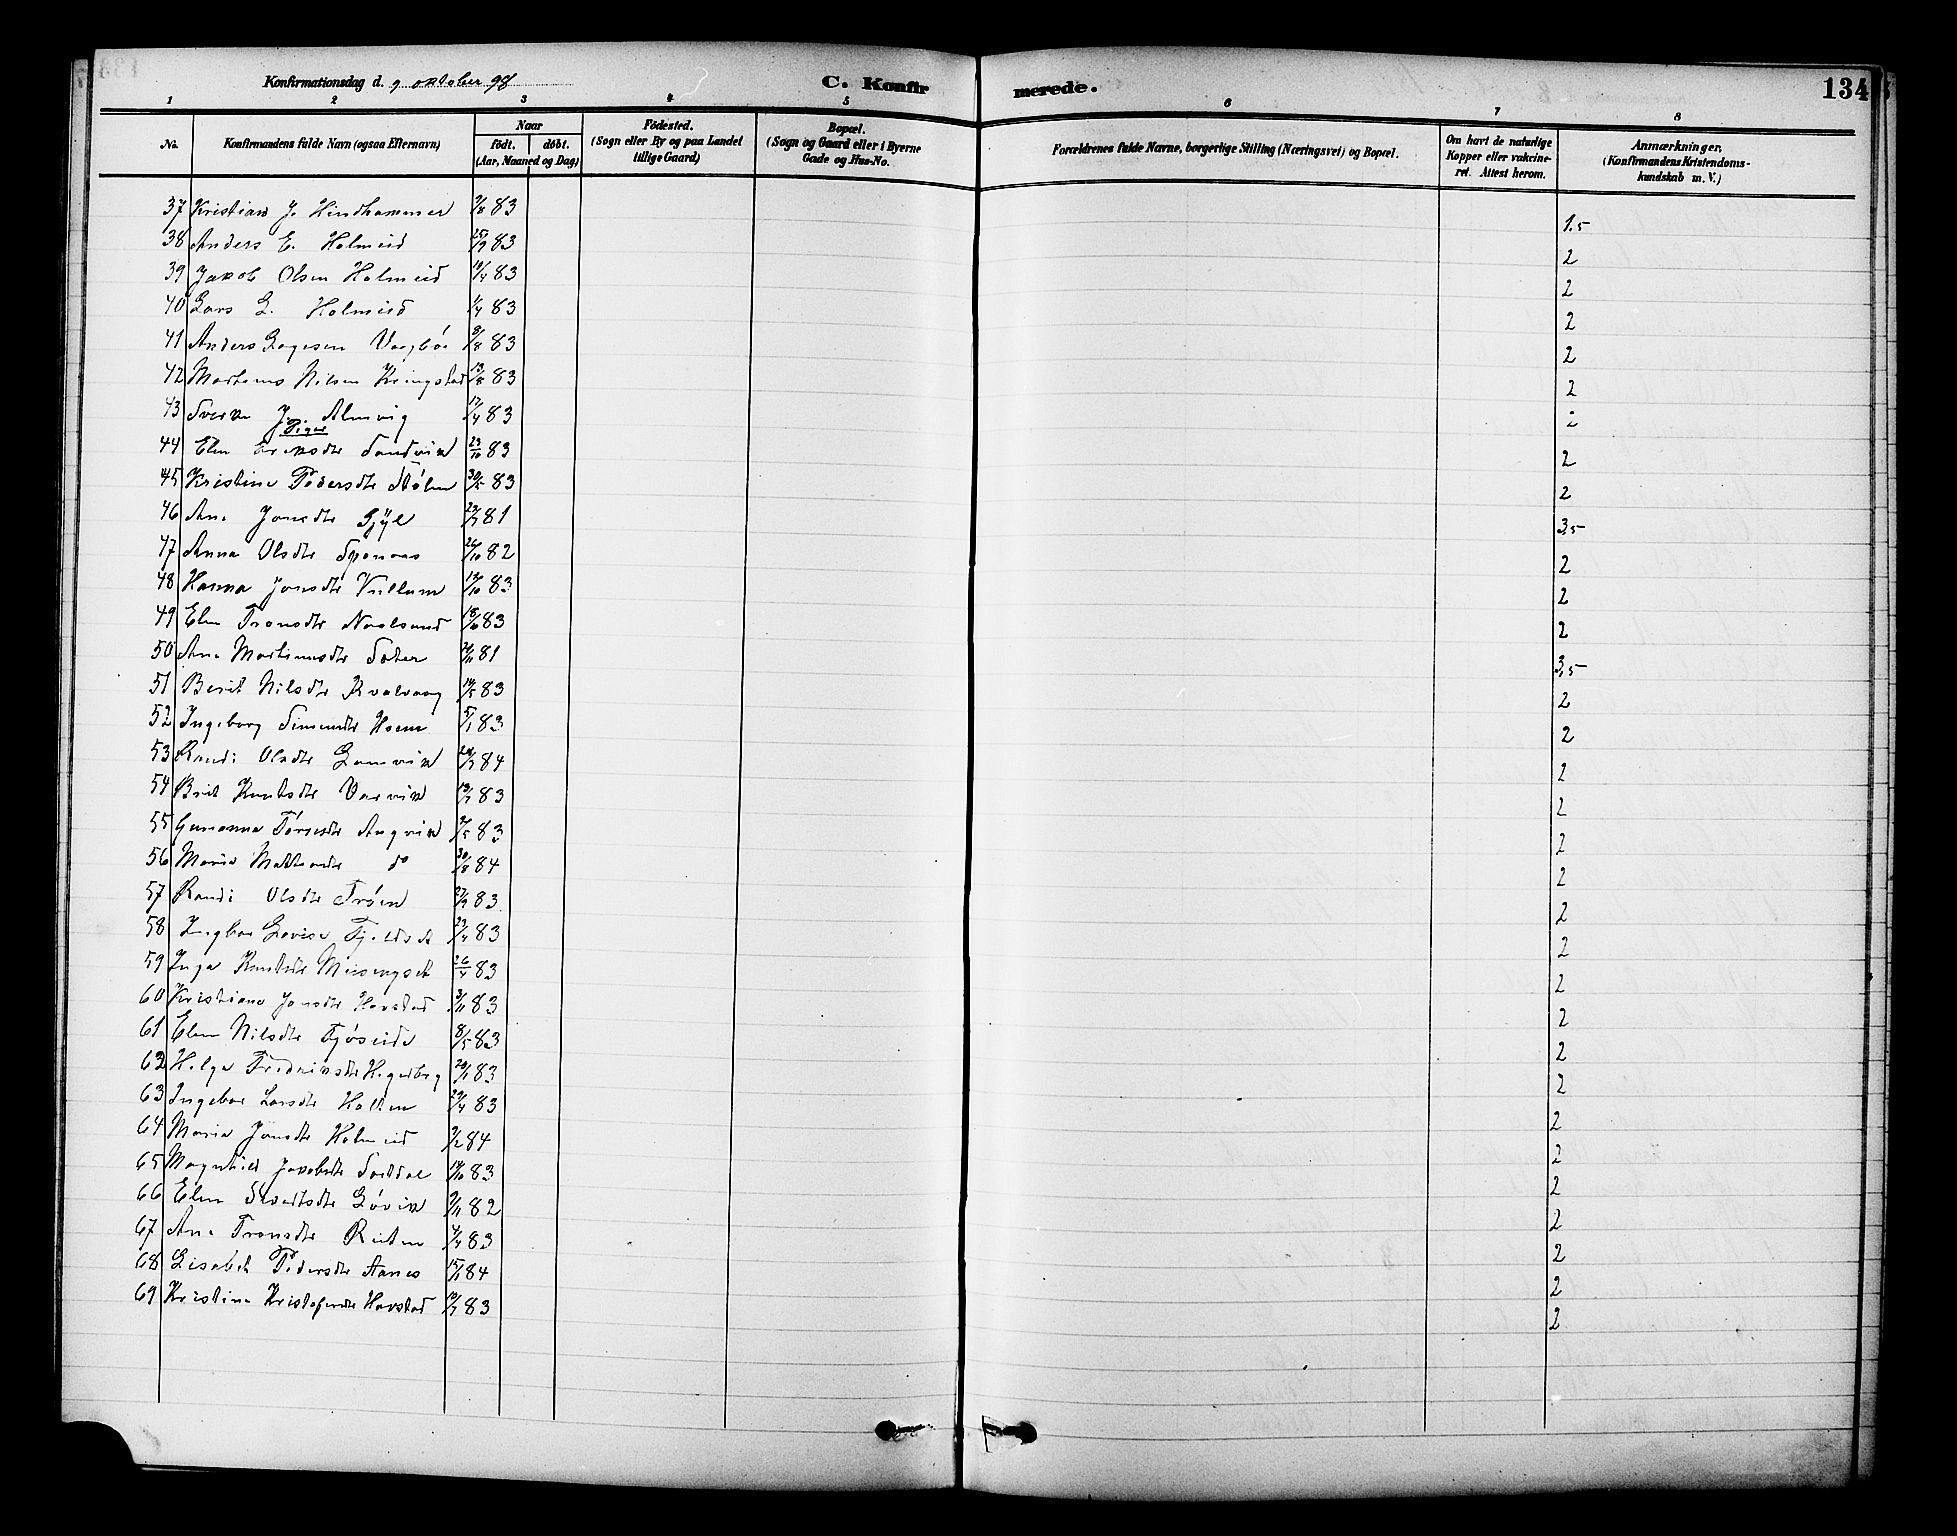 Konfirmationsdag d. 9 oktober 98
C. Konfirmerede.
134
1 2 3 4 5 6 7 8
No. Konfirmandens fulde Navn (ogsaa Efternavn) Naar født. døbt. (Aar, Maaned og Dag) Fødested. (Sogn eller By og paa Landet tillige Gaard) Bopæl. (Sogn og Gaard eller i Byerne Gade og Hus-No. Forældrenes fulde Navne, borgerlige Stilling (Næringsvei) og Bopæl. Om havt de naturlige Kopper eller vakcineret. Attest herom. Anmærkninger, (Konfirmandens Kristendomskundskab m. V.)
37 Kristian J. Hindhammer 83 1.5
38 Anders E. Holmeid 25/9 83 2
39 Jakob Olsen Holmeid 83 2
40 Lars L. Holmeid 1/4 83 2
41 Anders Vaagbø 8/8 83 2
42 Nilsen Kringstad 13/8 83 2
43 Sverke J. Almvig 17/4 83 2
Piger
44 Elen Eriksdtr Sandvik 23/10 83 2
45 Kristine Pedersdtr Stølen 30/5 83 2
46 Ane Jonsdtr Gjyl 81 3,5
47 Anna Olsdtr 26/10 82 2
48 Hanna Jonsdtr Vullum 83 2
49 Elen Tronsdtr Naalsund 18/10 83 2
50 Ane Martinusdtr Sæter 81 3,5
51 Berit Nilsdtr Kvalvaag 83 2
52 Ingeborg Simundtr Hoem 5/1 83 2
53 Randi Olsdtr 84 2
54 Brit Knutsdtr Varvik 83 2
55 Gurianna Angvik 83 2
56 Marie do 30/8 84 2
57 Randi Olsdtr Trøen 27/9 83 2
58 Ingbor Lovise 23/4 83 2
59 Inga Knutsdtr Meisingset 83 2
60 Kristiane Jonsdtr Havstad 3/11 83 2
61 Elen Nilsdtr Tjøseide 8/5 83 2
62 Helga Fredriksdtr 83 2
63 Ingebor Larsdtr Holten 29/4 83 2
64 Maria Jonsdtr Holmeid 84 2
65 Magnhild Jakobsdtr 83 2
66 Elen Sivertsdtr Løvik 9/11 82 2
67 Ane Tronsdtr Reiten 4/4 83 2
68 Lisabet Pedersdtr Aanes 84 2
69 Kristine Havstad 83 2